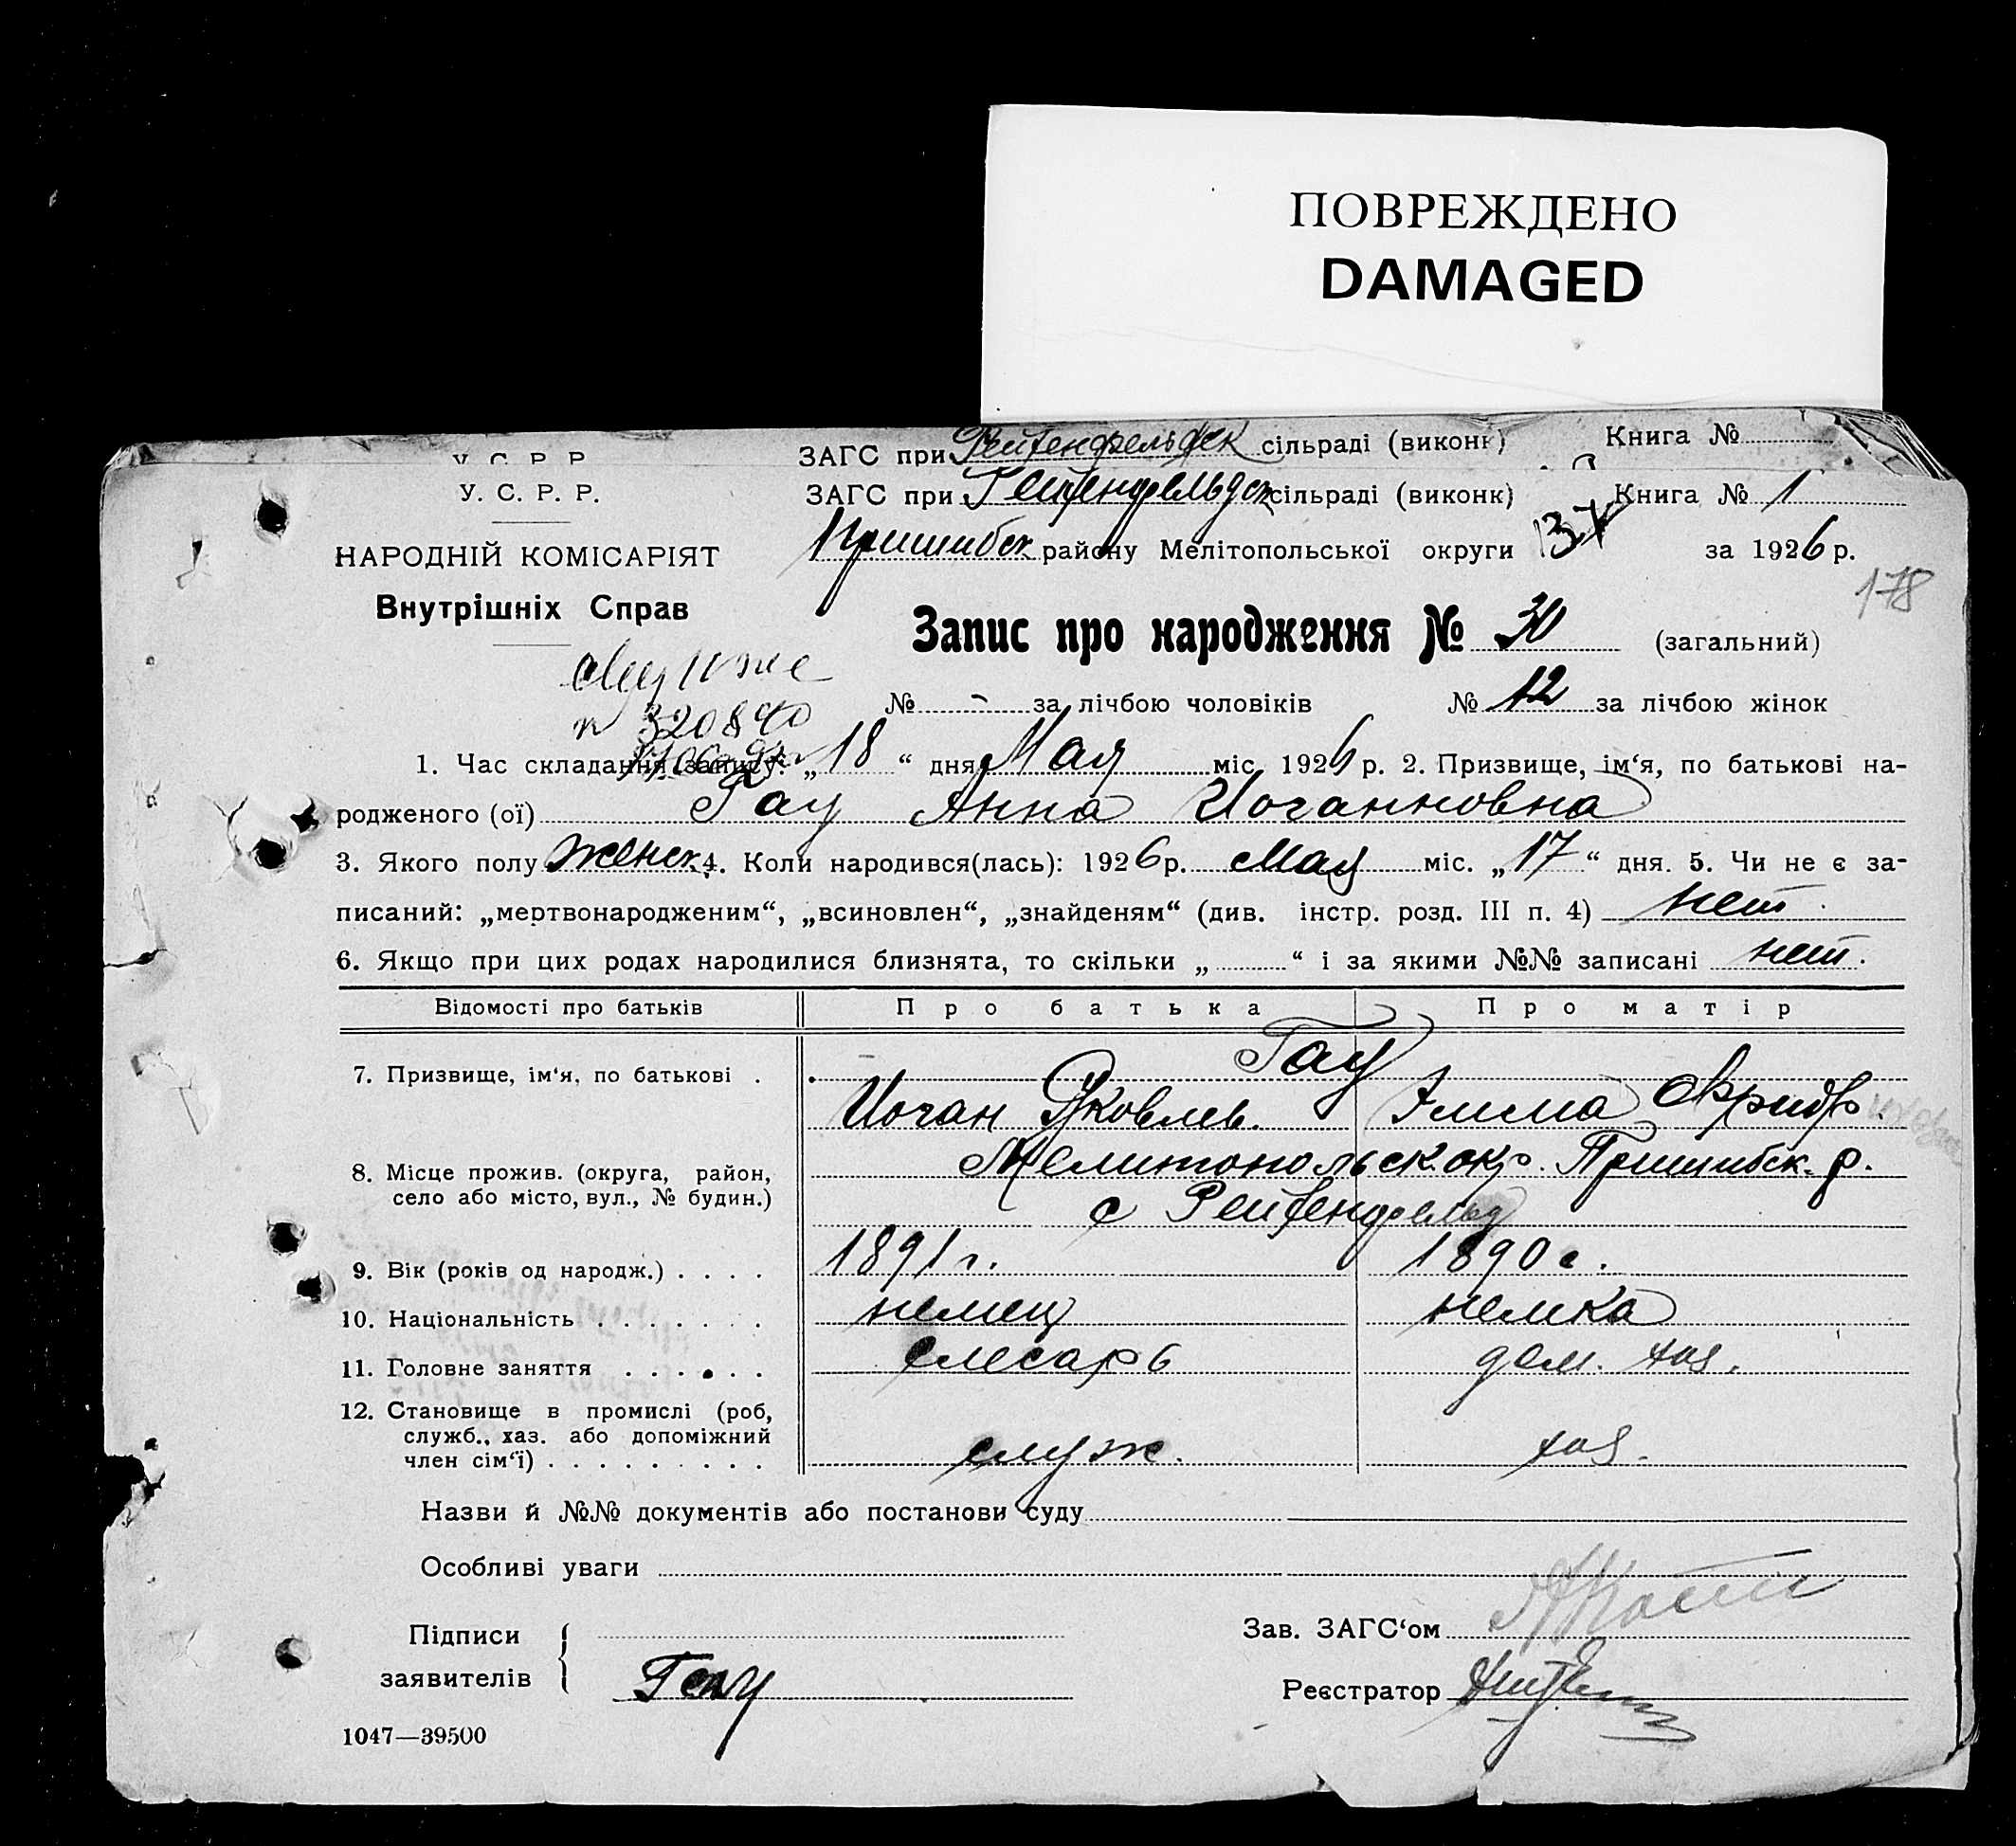 ПОВРЕЖДЕНО
DAMAGED
У. С. Р. Р.
ЗАГС при Рейхенфельдск сільраді (виконк) Книга №
У. С. Р. Р. ЗАГС при Рейхенфельдск сільраді (виконк) Книга № 1
НАРОДНІЙ КОМІСАРІЯТ Пришибск району Мелітопольської округи за 1926 р.
178
Внутрішніх Справ
Запис про народження № 30 (загальний)
№ - за лічбою чоловіків № 12 за лічбою жінок
1. Час складання запису: „ 18 “ дня Мая міс. 1926 р. 2. Призвище, ім‘я, по батькові на-
родженого (ої) Гау Анна Иоганновна
3. Якого полу женск. 4. Коли народився(лась): 1926 р. Мая міс. „ 17 “ дня. 5. Чи не є за-
писаний: „мертвонародженим“, „всиновлен“, „знайденям“ (див. інстр. розд. III п. 4) нет.
6. Якщо при цих родах народилися близнята, то скільки „ “ і за якими №№ записані нет.
Відомості про батьків Про батька Про матір
Гау
7. Призвище, ім‘я, по батькові .
Иоган Яковлев. Эмма Фридр.
8. Місце прожив. (округа, район, Мелитопольск. окр. Пришибск. р.
село або місто, вул., № будин.)
с Рейхенфельд
9. Вік (років од народж.) . . . . 1891 г. 1890 г.
10. Національність . . . . . . . немец немка
11. Головне заняття . . . . . . слесарь дом. хоз.
12. Становище в промислі (роб,
служб., хаз. або допоміжний
член сім‘ї) . . . . . . . . . служ. хоз.
Назви й №№ документів або постанови суду
Особливі уваги
Підписи
Зав. ЗАГС‘ом
заявителів Гау
Реєстратор
1047—39500